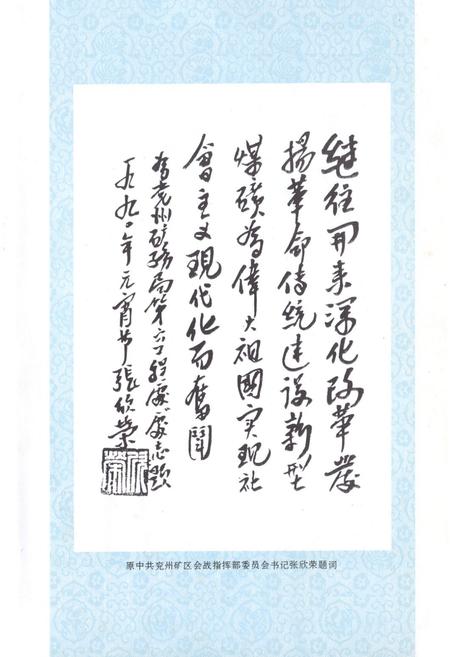 继往開来深化改革發
揚革命传统建设新型
煤礦為偉大祖國实现社
會主义现代化而奮鬥
为兖州矿务局第六工程處處志题
一九九〇年元宵节張欣荣
原中共兖州矿区会战指挥部委员会书记张欣荣题词